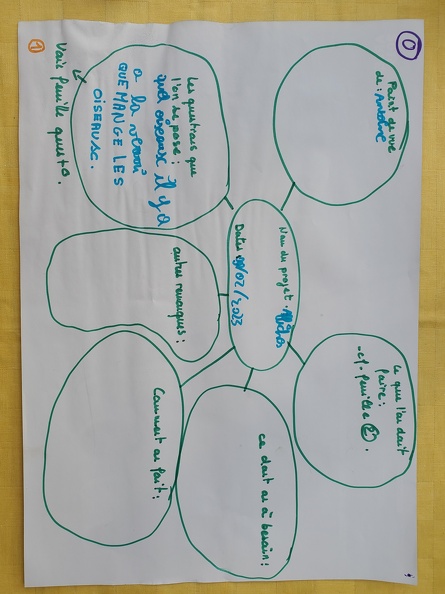 0
Point de vue
de : Antoine
Nom du projet : Affiches
Date : 09/02/2023
Les questions que
l'on se pose :
quel oiseaux il y a
a la
QUE MANGE LES
OISEAUSC.
Voir feuille quest°.
1
ce que l'on doit
faire :
- cf. feuille 2.
autres remarques :
ce dont on a besoin :
Comment on fait :